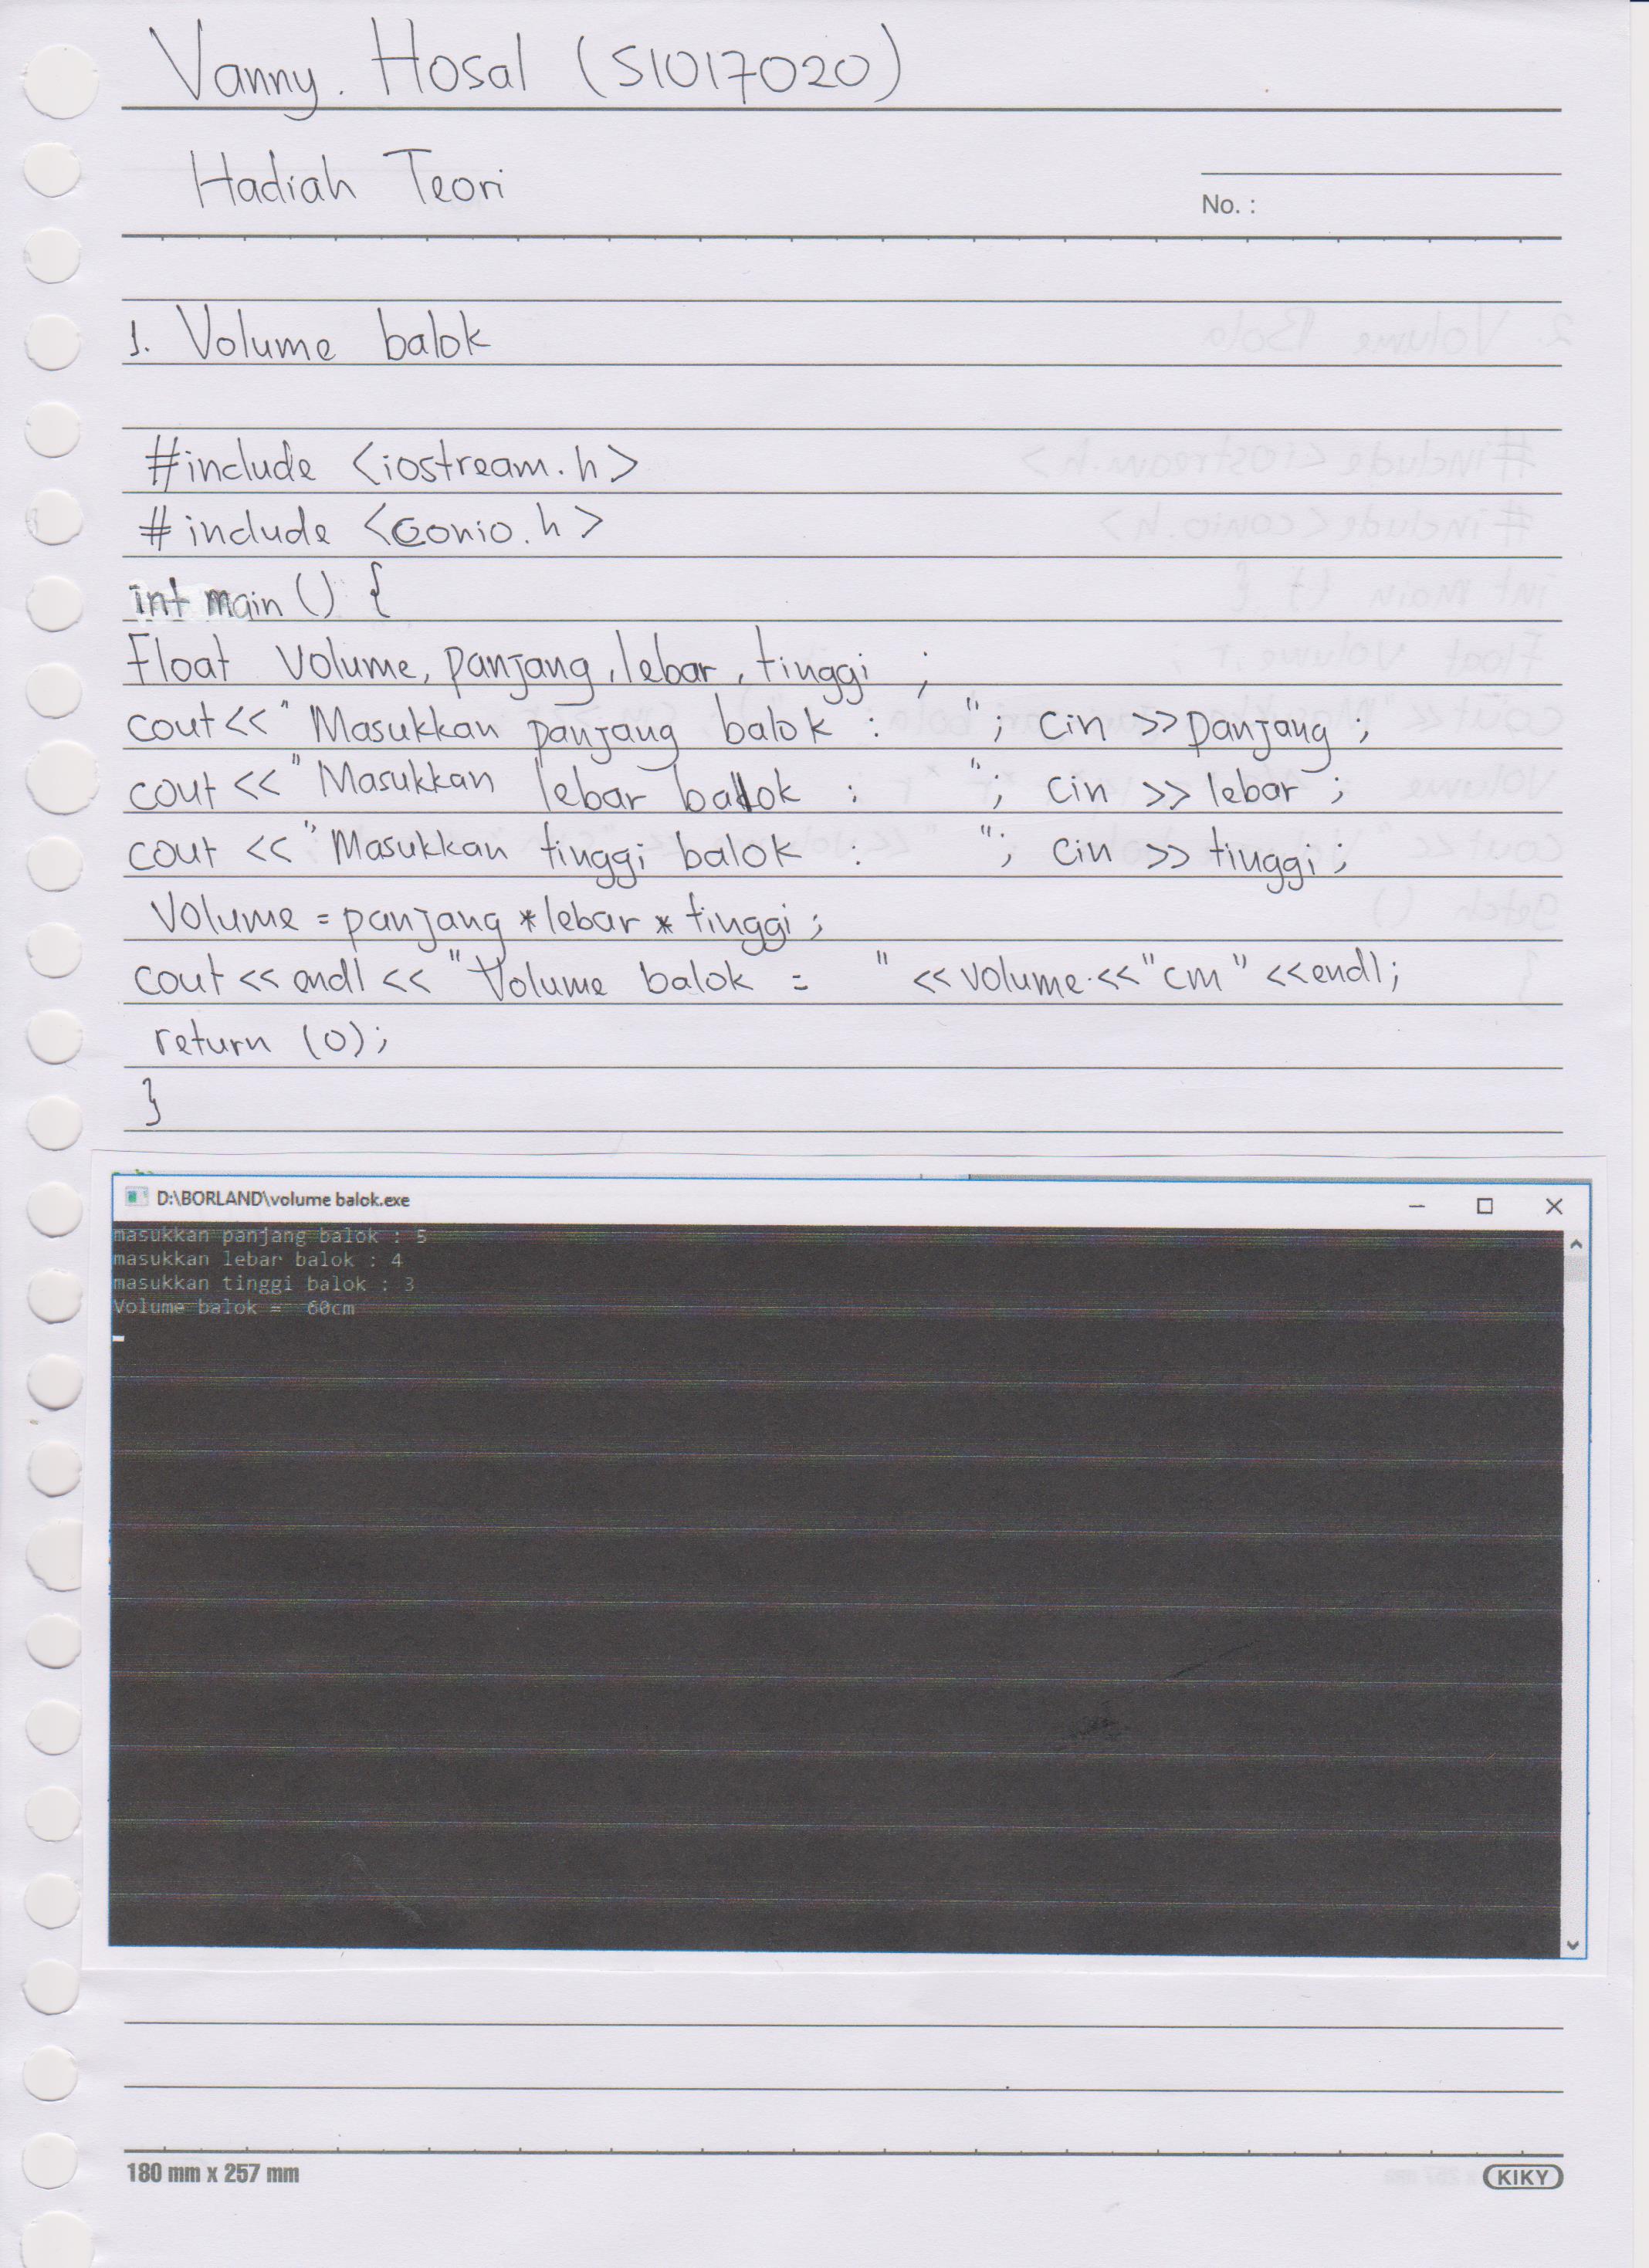 Vanny. Hosal (51017020)
Hadiah Teori
No. :
1. Volume balok
#include <iostream.h>
#include <conio.h>
int main () {
Float Volume, panjang, lebar, tinggi ;
cout<<" Masukkan panjang balok : "; cin >>panjang ;
cout <<" Masukkan lebar balok : "; cin >> lebar ;
cout <<" Masukkan tinggi balok : "; cin >> tinggi ;
Volume = panjang * lebar * tinggi ;
cout << endl << "Volume balok = " << volume << "cm" <<endl;
return (0);
}
D:\BORLAND\volume balok.exe
masukkan panjang balok : 5
masukkan lebar balok : 4
masukkan tinggi balok : 3
Volume balok = 60cm
180 mm x 257 mm
KIKY